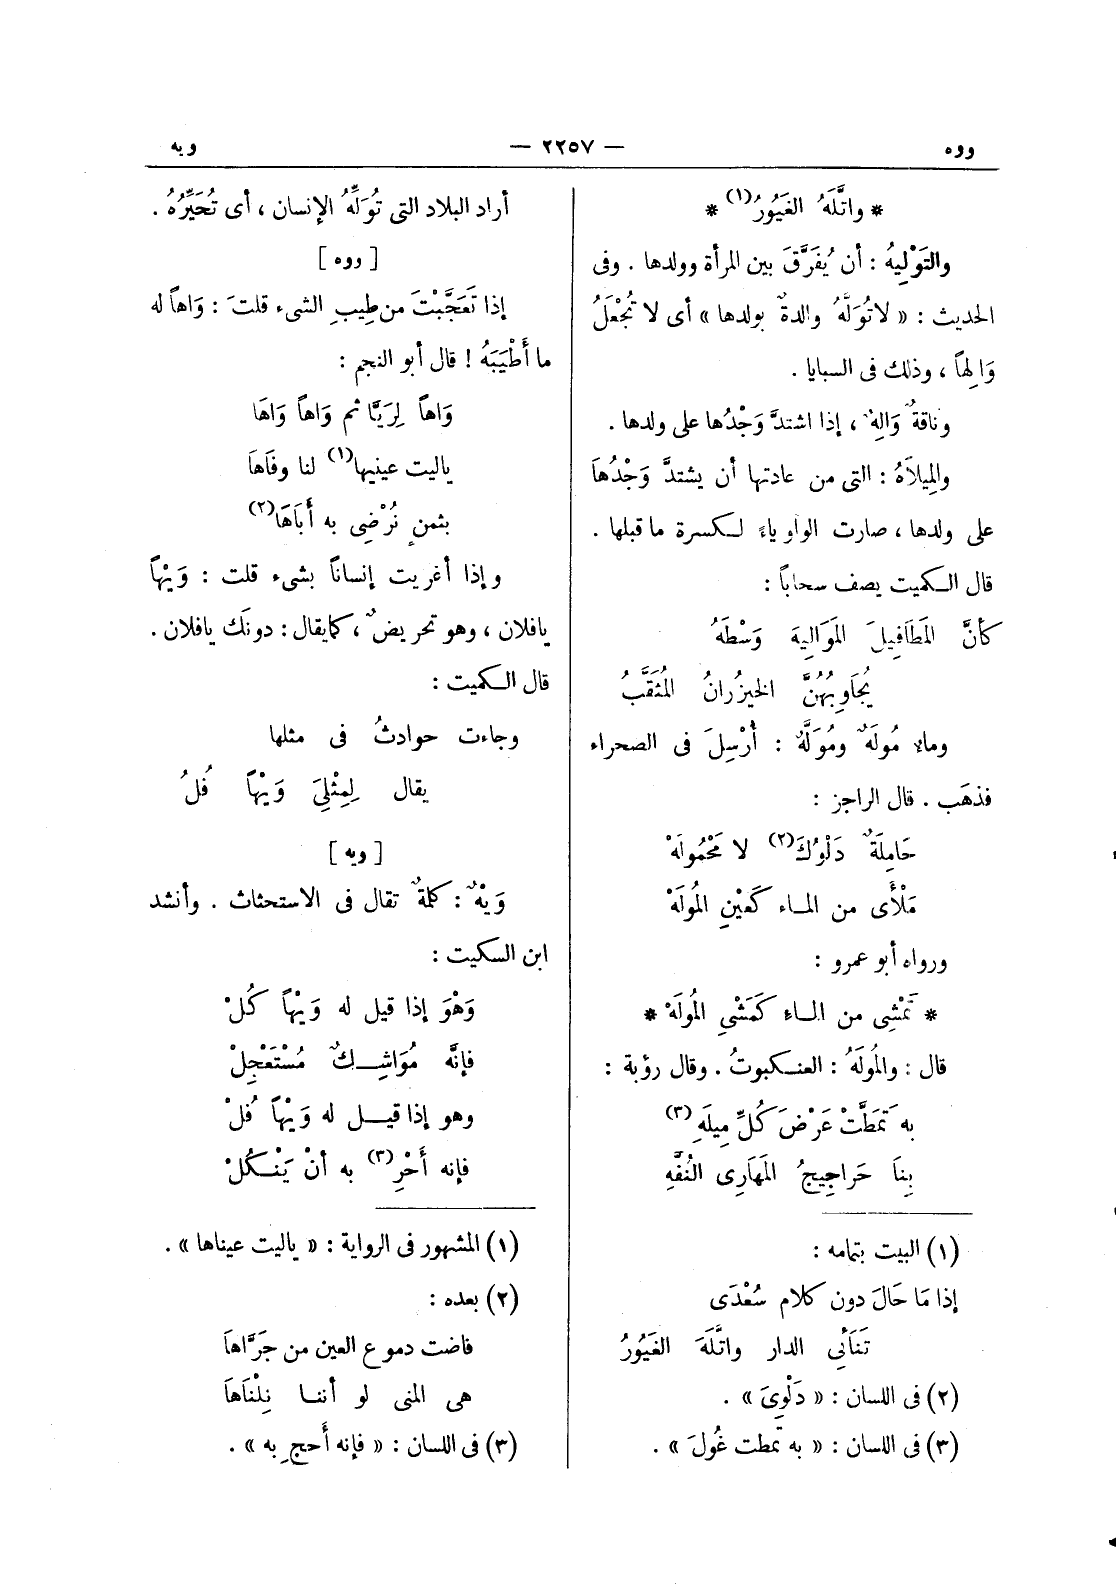 ووه — ٢٢٥٧ — ويه
* واتَّلَهُ الغَيُورُ(١) *
والتَوْلِيهُ : أن يُفَرَّقَ بين المرأة وولدها . وفى
الحديث : « لا تُوَلَّهُ والدةٌ بولدها » أى لا تُجْعَلُ
وَالِهاً ، وذلك فى السبايا .
وناقةٌ وَالِهٌ ، إذا اشتدَّ وَجْدُها على ولدها .
والمِيلاَهُ : التى من عادتها أن يشتدَّ وَجْدُهَا
على ولدها ، صارت الواو ياءً لكسرة ما قبلها .
قال الكميت يصف سحاباً :
كأنَّ المَطَافِيلَ المَوَالِيهَ وَسْطَهُ
يُجَاوِبُهُنَّ الخيزُرانُ المُثَقَّبُ
وماء مُولَهٌ ومُوَلَّهٌ : أُرْسِلَ فى الصحراء
فذهَب . قال الراجز :
حَامِلَةٌ دَلْوُكَ(٢) لا مَحْمُولَهْ
مَلْأَى من المـاء كَعَيْنِ المُولَهْ
ورواه أبو عمرو :
* تَمْشِى من المـاءِ كَمَشْىِ المُولَهْ *
قال : والمُولَهُ : العنكبوتُ . وقال رؤبة :
به تَمَطَّتْ عَرْضَ كُلِّ مِيلَهِ (٣)
بِنَا حَراجِيجُ المَهَارِى النُفَّهِ
(١) البيت بتمامه :
إذا مَا حَالَ دون كلام سُعْدَى
تَنَائِى الدار واتَّلَهَ الغَيُورُ
(٢) فى اللسان : « دَلْوِىَ » .
(٣) فى اللسان : « به تمطت غُولَ » .
أراد البلاد التى تُوَلِّهُ الإنسان ، أى تُحَيِّرُهُ .
[ ووه ]
إذا تَعَجَّبْتَ من طِيبِ الشىء قلتَ : وَاهاً له
ما أَطْيَبَهُ ! قال أبو النجم :
وَاهاً لِرَيَّا ثم وَاهاً وَاهَا
ياليت عينيها(١) لنا وفَاهَا
بثمنٍ نُرْضِى به أَبَاهَا(٢)
وإذا أغريت إنساناً بشىء قلت : وَيْهاً
يافلان ، وهو تحريضٌ ، كمايقال : دونَك يافلان .
قال الكميت :
وجاءت حوادثُ فى مثلها
يقال لِمِثْلِىَ وَيْهاً فُلُ
[ ويه ]
وَيْهٌ : كلمةٌ تقال فى الاستحثاث . وأنشد
ابن السكيت :
وَهْوَ إذا قيل له وَيْهاً كُلْ
فإنَّه مُوَاشِـكٌ مُسْتَعْجِلْ
وهو إذا قيـل له وَيْهاً فُلْ
فإنه أَحْرِ(٣) به أنْ يَنْـكُلْ
(١) المشهور فى الرواية : « ياليت عيناها » .
(٢) بعده :
فاضت دموع العين من جَرَّاهَا
هى المنى لو أننـا نِلْنَاهَا
(٣) فى اللسان : « فإنه أحج به » .